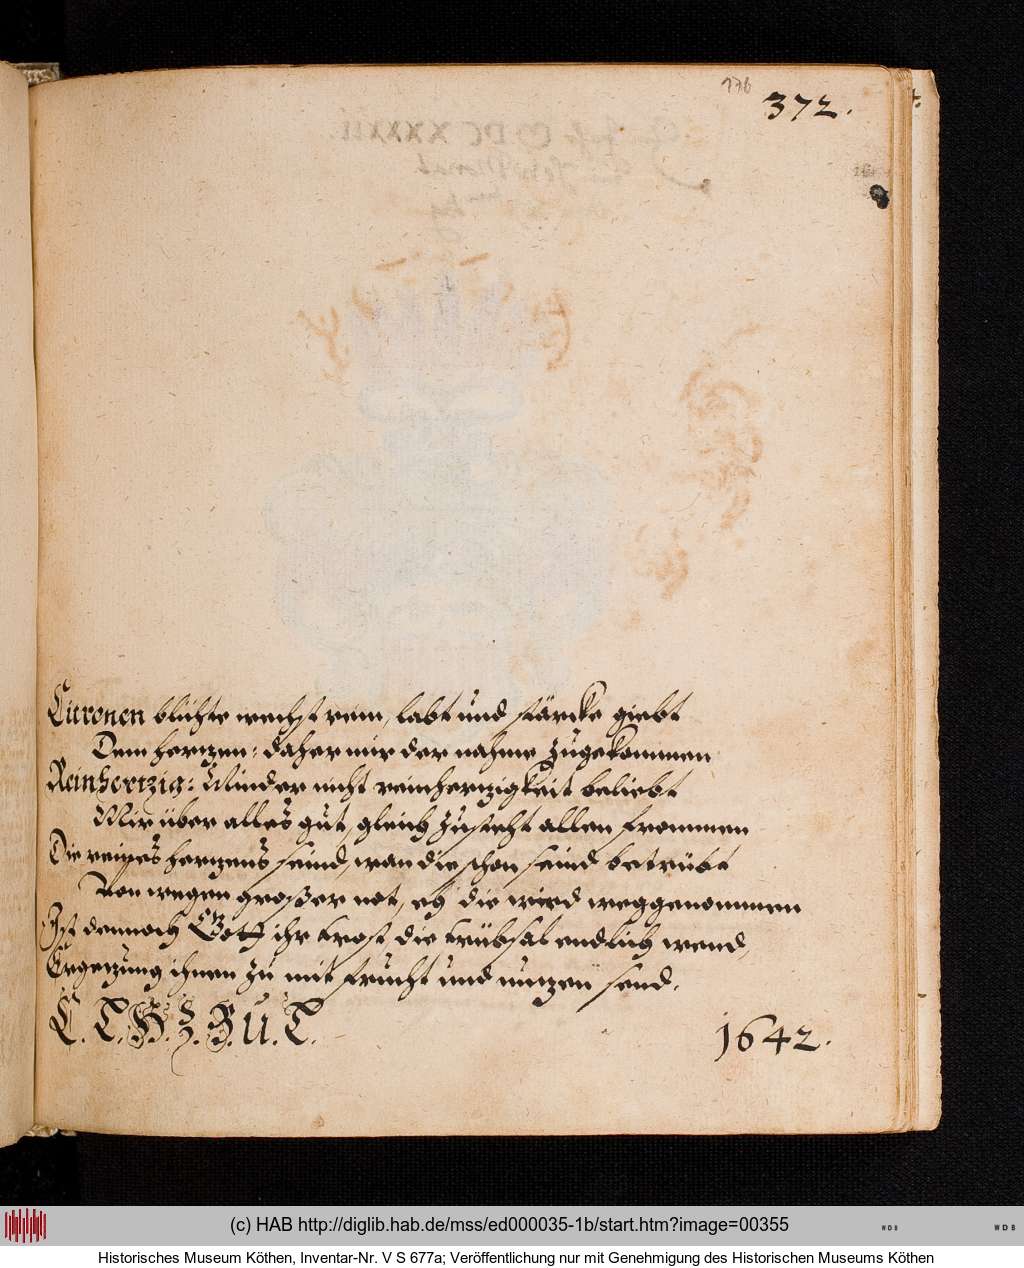 176
372.
Citronen blühte wechst rein, labt und stärcke giebt
Dem hertzen: daher mir der nahme zugekommen
Reinhertzig: Minder nicht reinhertzigkeit beliebt
Mir über alles gut, gleich zusteht allen frommen
Die reines hertzens seind, wan die schon seind betrübt
Von wegen großer not, eh die wird weggenommen
Ist dennoch Gott ihr trost, die trübsal endlich wend,
Ergetzung ihnen zu mit frucht und nutzen send.
C. T. H. Z. B. U. T.
1642.
(c) HAB http://diglib.hab.de/mss/ed000035-1b/start.htm?image=00355
WDB
WDB
Historisches Museum Köthen, Inventar-Nr. V S 677a; Veröffentlichung nur mit Genehmigung des Historischen Museums Köthen